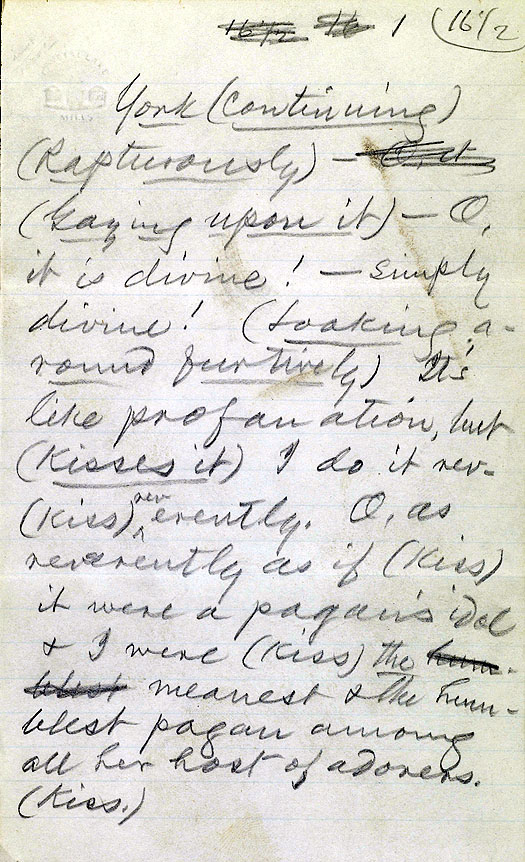 16 1/2 16 1 (16 1/2
York (Continuing)
(Rapturously) — O, it
(Gazing upon it) — O,
it is divine! — simply
divine! (Looking a-
round furtively) It's
like profanation, but
(Kisses it) I do it rev-
(Kiss) rev erently. O, as
reverently as if (Kiss)
it were a pagan's idol
& I were (Kiss) the hum-
blest meanest & the hum-
blest pagan among
all her host of adorers.
(Kiss.)